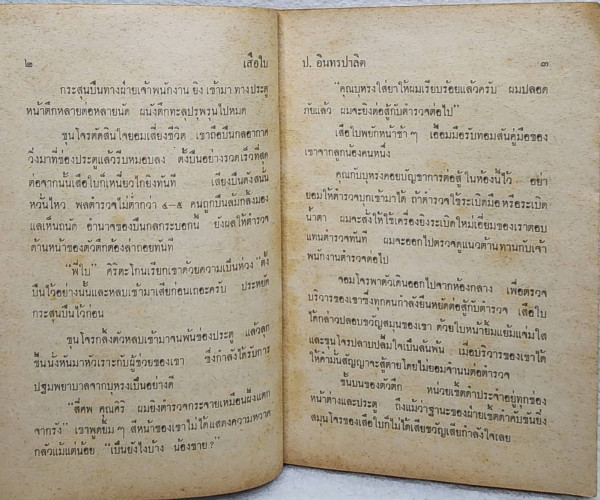 ๒ เสือใบ
กระสุนปืนทางฝ่ายเจ้าพนักงาน ยิง เข้ามา ทางประตู
หน้าตึกหลายต่อหลายนัด ผนังตึกทะลุปรุพรุนไปหมด
ขุนโจรตัดสินใจยอมเสี่ยงชีวิต เขาถือปืนกลอากาศ
วิ่งมาที่ช่องประตูแล้วรีบหมอบลง ตั้งปืนอย่างรวดเร็วที่สุด
ต่อจากนั้นเสือใบก็เหนี่ยวไกยิงทันที เสียงปืนดังสนั่น
หวั่นไหว พลตำรวจไม่ต่ำกว่า ๔-๕ คนถูกปืนล้มกลิ้งมอง
แลเห็นถนัด อำนาจของปืนกลกระบอกนี้ ยังผลให้ตำรวจ
ด้านหน้าของตัวตึกต้องล่าถอยทันที
"พี่ใบ" คิริตะโกนเรียกเขาด้วยความเป็นห่วง "ตั้ง
ปืนไว้อย่างนั้นและหลบเข้ามาเสียก่อนเถอะครับ ประหยัด
กระสุนปืนไว้ก่อน
ขุนโจรกลิ้งตัวหลบเข้ามาจนพ้นช่องประตู แล้วลุก
ขึ้นนั่งหันมาหัวเราะกับผู้ช่วยของเขา ซึ่งกำลังได้รับการ
ปฐมพยาบาลจากบุหรงเป็นอย่างดี
"สี่ศพ คุณคิริ ผมยิงตำรวจกระจายเหมือนผึ้งแตก
จากรัง" เขาพูดยิ้ม ๆ สีหน้าของเขาไม่ได้แสดงความหวาด
กลัวแม้แต่น้อย "เป็นยังไงบ้าง น้องชาย ?"
ป. อินทรปาลิต ๓
"คุณบุหรงใส่ยาให้ผมเรียบร้อยแล้วครับ ผมปลอด
ภัยแล้ว ผมจะยิงต่อสู้กับตำรวจต่อไป"
เสือใบพยักหน้าช้า ๆ เอื้อมมือรับทอมสันคู่มือของ
เขาจากลูกน้องคนหนึ่ง
คุณกับบุหรงคอยบัญชาการต่อสู้ ในห้องนี้ไว้ อย่า
ยอมให้ตำรวจบุกเข้ามาได้ ถ้าตำรวจใช้ระเบิดมือหรือระเบิด
น้ำตา ผมจะสั่งให้ใช้เครื่องยิงระเบิดใหม่เอี่ยมของเราตอบ
แทนตำรวจทันที ผมจะออกไปตรวจดูแนวต้านทานกับเจ้า
พนักงานตำรวจต่อไป
จอมโจรพาตัวเดินออกไปจากห้องกลาง เพื่อตรวจ
บริวารของเขาซึ่งทุกคนกำลังยืนหยัดต่อสู้กับตำรวจ เสือใบ
ได้กล่าวปลอบขวัญสมุนของเขา ด้วยใบหน้ายิ้มแย้มแจ่มใส
และขุนโจรปลาบปลื้มใจเป็นล้นพ้น เมื่อบริวารของเขาได้
ให้คำมั่นสัญญาจะสู้ตายโดยไม่ยอมจำนนต่อตำรวจ
ชั้นบนของตัวตึก หน่วยเช็ดดำประจำอยู่ทุกช่อง
หน้าต่างและประตู ถึงแม้ว่าฐานะของฝ่ายเช็ดดำคับขันยิ่ง
สมุนโจรของเสือใบก็ไม่ได้เสียขวัญเสียกำลังใจเลย